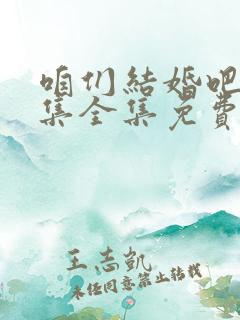 咱们結婚吧
集全集免費
王志凯
未经同意禁止转载